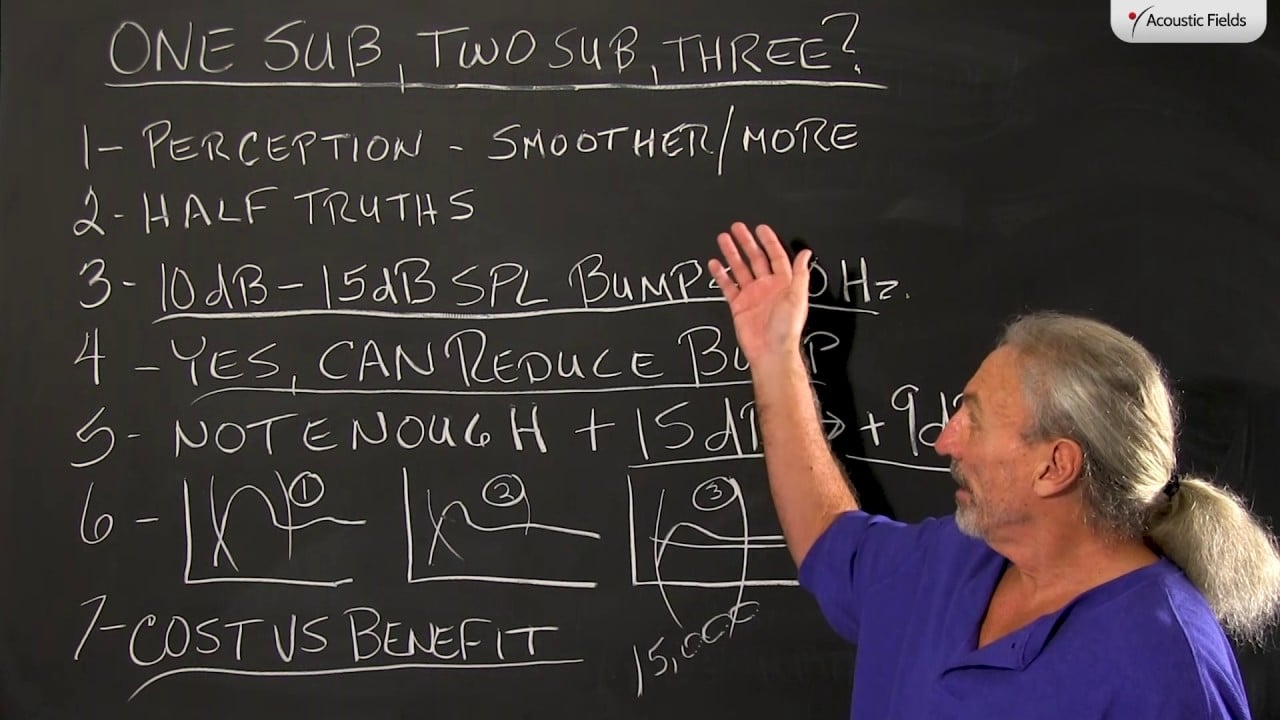 Acoustic Fields
ONE SUB, TWO SUB, THREE?
1- PERCEPTION - SMOOTHER/MORE
2- HALF TRUTHS
3- 10dB - 15dB SPL BUMP 0 Hz.
4 - YES, CAN REDUCE BUMP
5- NOT ENOUGH + 15d → + 9d
6 - 1 2 3
7- COST VS BENEFIT
15,000